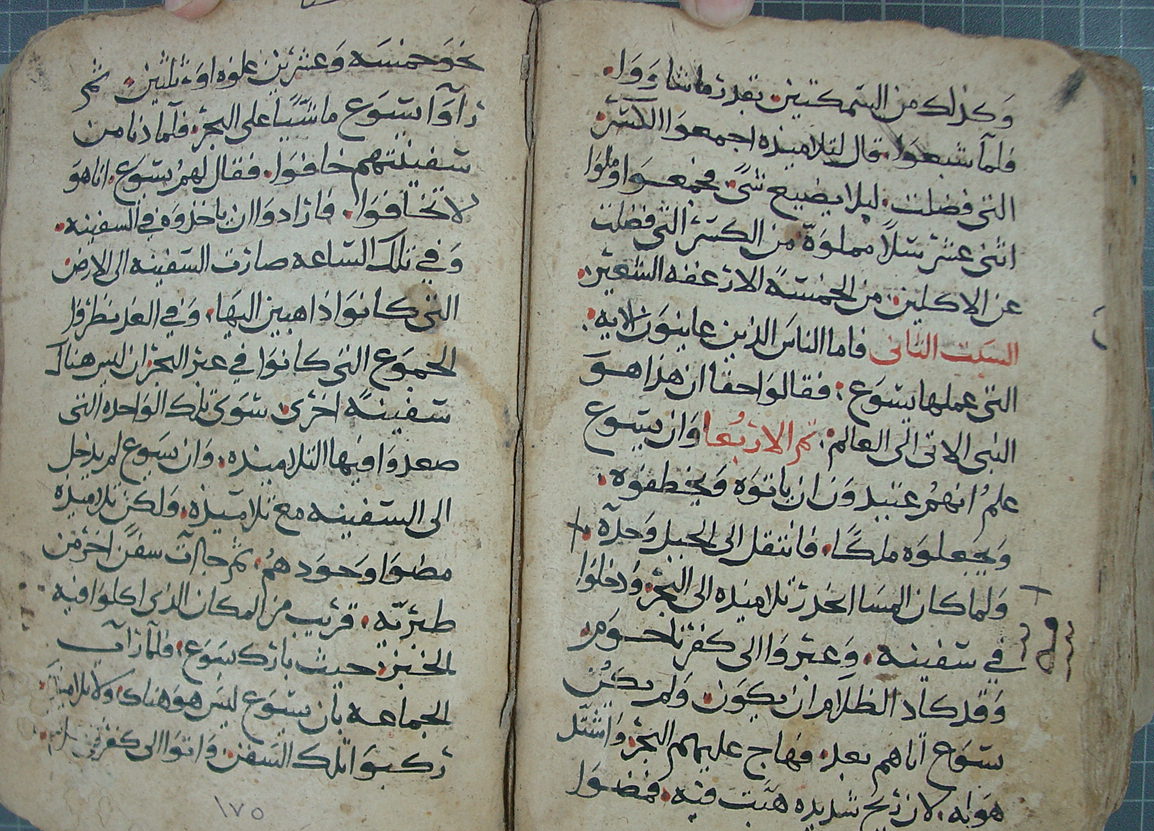 وكذلك من السمكتين بقدر ما شاووا.
فلما شبعوا. قال لتلاميذه اجمعوا الكسر
التي فضلت. ليلا يضيع شي. فجمعوا وملوا
اثني عشر سلًا مملوة من الكسر التي فضلت
عن الاكلين. من الخمسة الارغفه الشعير.
السبت الثاني فاما الناس الذين عاينوا الايه.
التي عملها يسوع: فقالوا حقا ان هذا هو
النبي الاتي الى العالم: ثم الاربعا وان يسوع
علم انهم عتيدون ان ياتوه ويخطفوه.
ويجعلوه ملكًا. فانتقل الى الجبل وحده.
ولما كان المسا انحدر تلاميذه الى البحر. ودخلوا
في سفينه. وعبروا الى كفرناحوم
وقد كاد الظلام ان يكون. ولم يكن
يسوع اتاهم بعد. فهاج عليهم البحر. واشتد
هوايه. لان ريح شديده هبت فيه. فمضوا
نحو خمسه وعشرين غلوه او ثلثين. ثم
راوا يسوع ماشيًا على البحر. فلما دنا من
سفينتهم خافوا. فقال لهم يسوع. انا هو
لا تخافوا. فارادوا ان ياخذوه في السفينه.
وفي تلك الساعه صارت السفينه الى الارض
التي كانوا ذاهبين اليها. وفي الغد نظروا
الجموع التي كانوا في عبر البحر. ان ليس هناك
سفينةً اخرى. سوى تلك الواحده التي
صعدوا فيها التلاميذه. وان يسوع لم يدخل
الى السفينه مع تلاميذه. ولكن تلاميذه
مضوا وحودهم. ثم جاات سفن اخر من
طبريه. قريب من المكان الذي اكلوا فيه
الخبز: حيث بارك يسوع. فلما رات
الجماعه بان يسوع ليس هو هناك. ولا تلاميذه.
ركبوا تلك السفن. واتوا الى كفرناحوم.
١٧٥